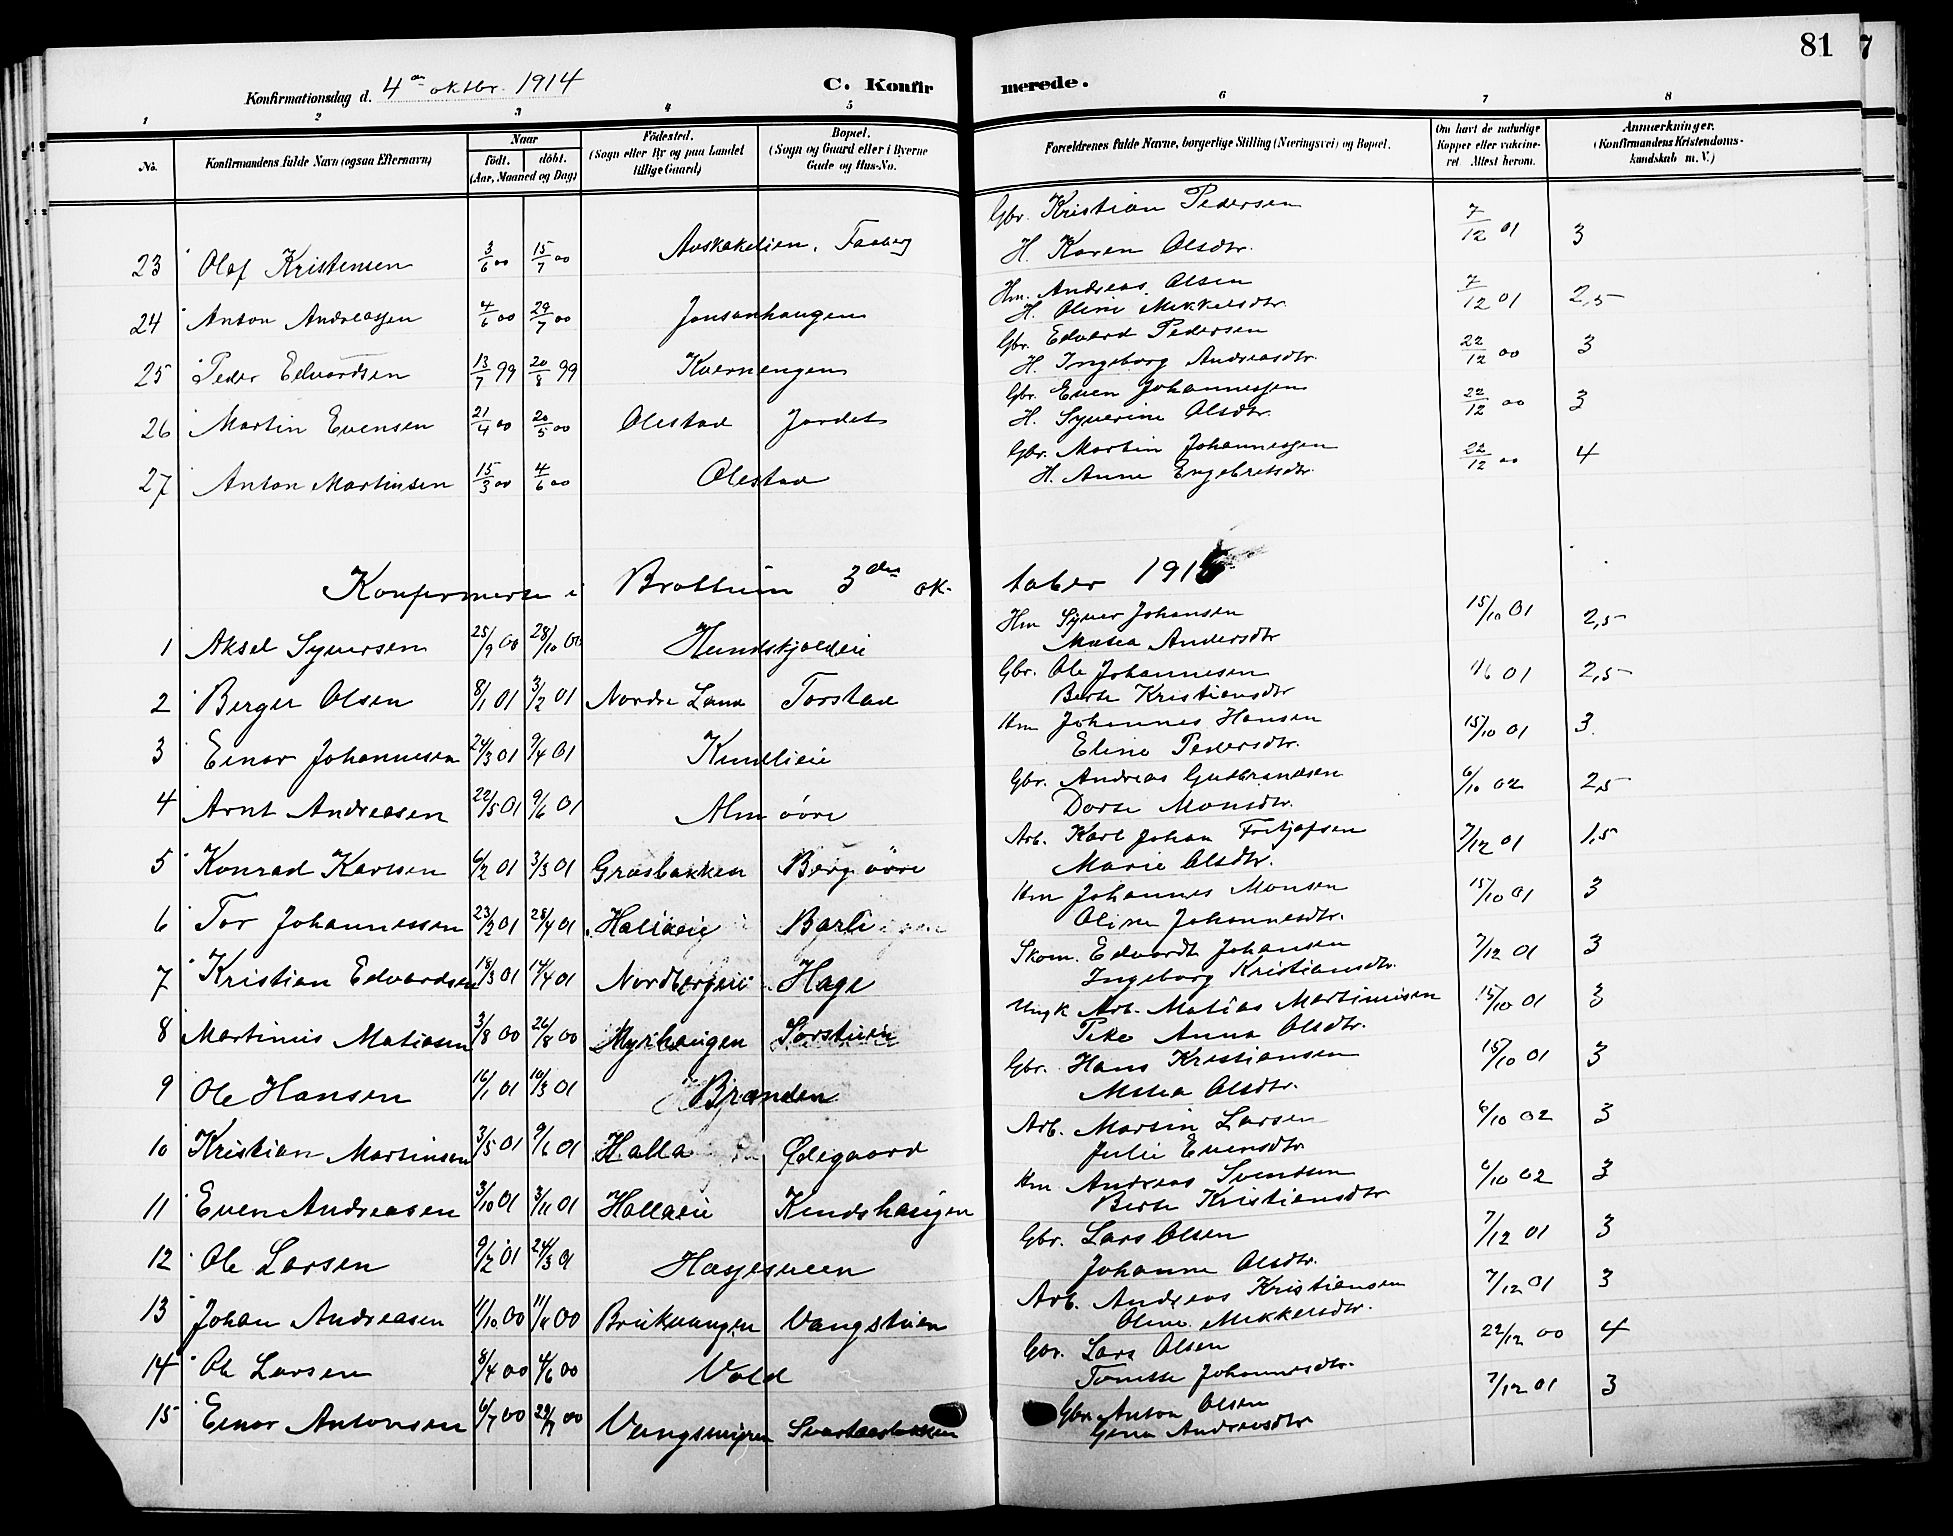 81
7
Konfirmationsdag d. 4de oktbr. 1914
C. Konfirmerede.
1 2 3 4 5 6 7 8
No.
Konfirmandens fulde Navn (ogsaa Efternavn)
Naar
født. døbt.
(Aar, Maaned og Dag)
Födested.
(Sogn eller By og paa Landet
tillige Gaard)
Bopæl.
(Sogn og Gaard eller i Byerne
Gade og Hus-No.
Forældrenes fulde Navne, borgerlige Stilling (Næringsvei) og Bopæl.
Om havt de naturlige
Kopper eller vakcine-
ret Attest herom.
Anmærkninger.
(Konfirmandens Kristendoms-
kundskab m. V.)
23 Olaf Kristensen 3/6 00 15/7 00 Faaberg Gbr. Kristian Pedersen H. Karen Olsdtr. 7/12 01 3
24 Anton Andreassen 4/6 00 29/7 00 Jonsanhaugen Hm. Andreas Olsen H. Oline Mikkelsdtr. 7/12 01 2,5
25 Peder Edvardsen 13/7 99 20/8 99 Kvernengen Gbr. Edvard Pedersen H. Ingeborg Andreasdtr. 22/12 00 3
26 Martin Evensen 21/4 00 20/5 00 Olestad Jordet Gbr. Even Johannessen H. Syverine Olsdtr. 22/12 00 3
27 Anton Martinsen 15/3 00 4/6 00 Olestad Gbr. Martin Johannessen H. Anne Engebretsdtr. 22/12 00 4
i Brøttum 3die oktober 1915
1 Aksel Syversen 25/9 00 28/10 00 Hundskjoldeie Hm Syver Johansen Matea Andersdtr 15/10 01 2,5
2 Birger Olsen 8/1 01 3/2 01 Nordre Land Torstad Gbr. Ole Johannesen Berte Kristiansdtr 1/6 01 2,5
3 Einar Johannesen 24/3 01 9/4 01 Kindlieie Hm Johannes Hansen Eline Pedersdtr. 15/10 01 3.
4 Arnt Andreasen 22/5 01 9/6 01 Alm øvre Gbr. Andreas Gudbrandsen Dorte Monsdtr. 6/10 02 2,5
5 Konrad Karlsen 6/2 01 3/3 01 Græsbakken Berg øvre Arb. Karl Johan Fritjofsen Marie Olsdtr. 7/12 01 1,5
6 Tor Johannessen 23/2 01 28/4 01 Hallaeie Barli Hm Johannes Monsen Oline Johannesdtr. 15/10 01 3
7 Kristian Edvardsen 18/3 01 14/4 01 Nordbergeie Hage Skom. Edvardt Johansen Ingeborg Kristiansdtr. 7/12 01 3
8 Martinus Matiasen 3/8 00 26/8 00 Myrhaugen Ungk Arb. Matias Martinusen Pike Anna Olsdtr. 15/10 01 3
9 Ole Hansen 16/1 01 10/3 01 Branden Gbr. Hans Kristiansen Matea Olsdtr. 15/10 01 3
10 Kristian Martinsen 3/5 01 9/6 01 Halla Ødegaard Arb. Martin Larsen Julie Evensdtr 6/10 02 3
11 Even Andreasen 3/10 01 3/11 01 Hallaeie Kindshaugen Hm Andreas Svendsen Berte Kristiansdtr 6/10 02 3
12 Ole Larsen 9/2 01 24/3 01 Hagesveen Gbr. Lars Olsen Johanne Olsdtr. 7/12 01 3
13 Johan Andreasen 11/10 00 11/11 00 Brukvangen Vangstuen Arb. Andreas Kristiansen Oline Mikkelsdtr. 7/12 01 3
14 Ole Larsen 8/4 00 4/6 00 Vold Gbr. Lars Olsen Tomette Johannesdtr. 22/12 00 4
15 Einar Antonsen 6/7 00 29/7 00 Vangsengen Svartaasbakken Gbr. Anton Olsen Gina Andreasdtr 7/12 01 3